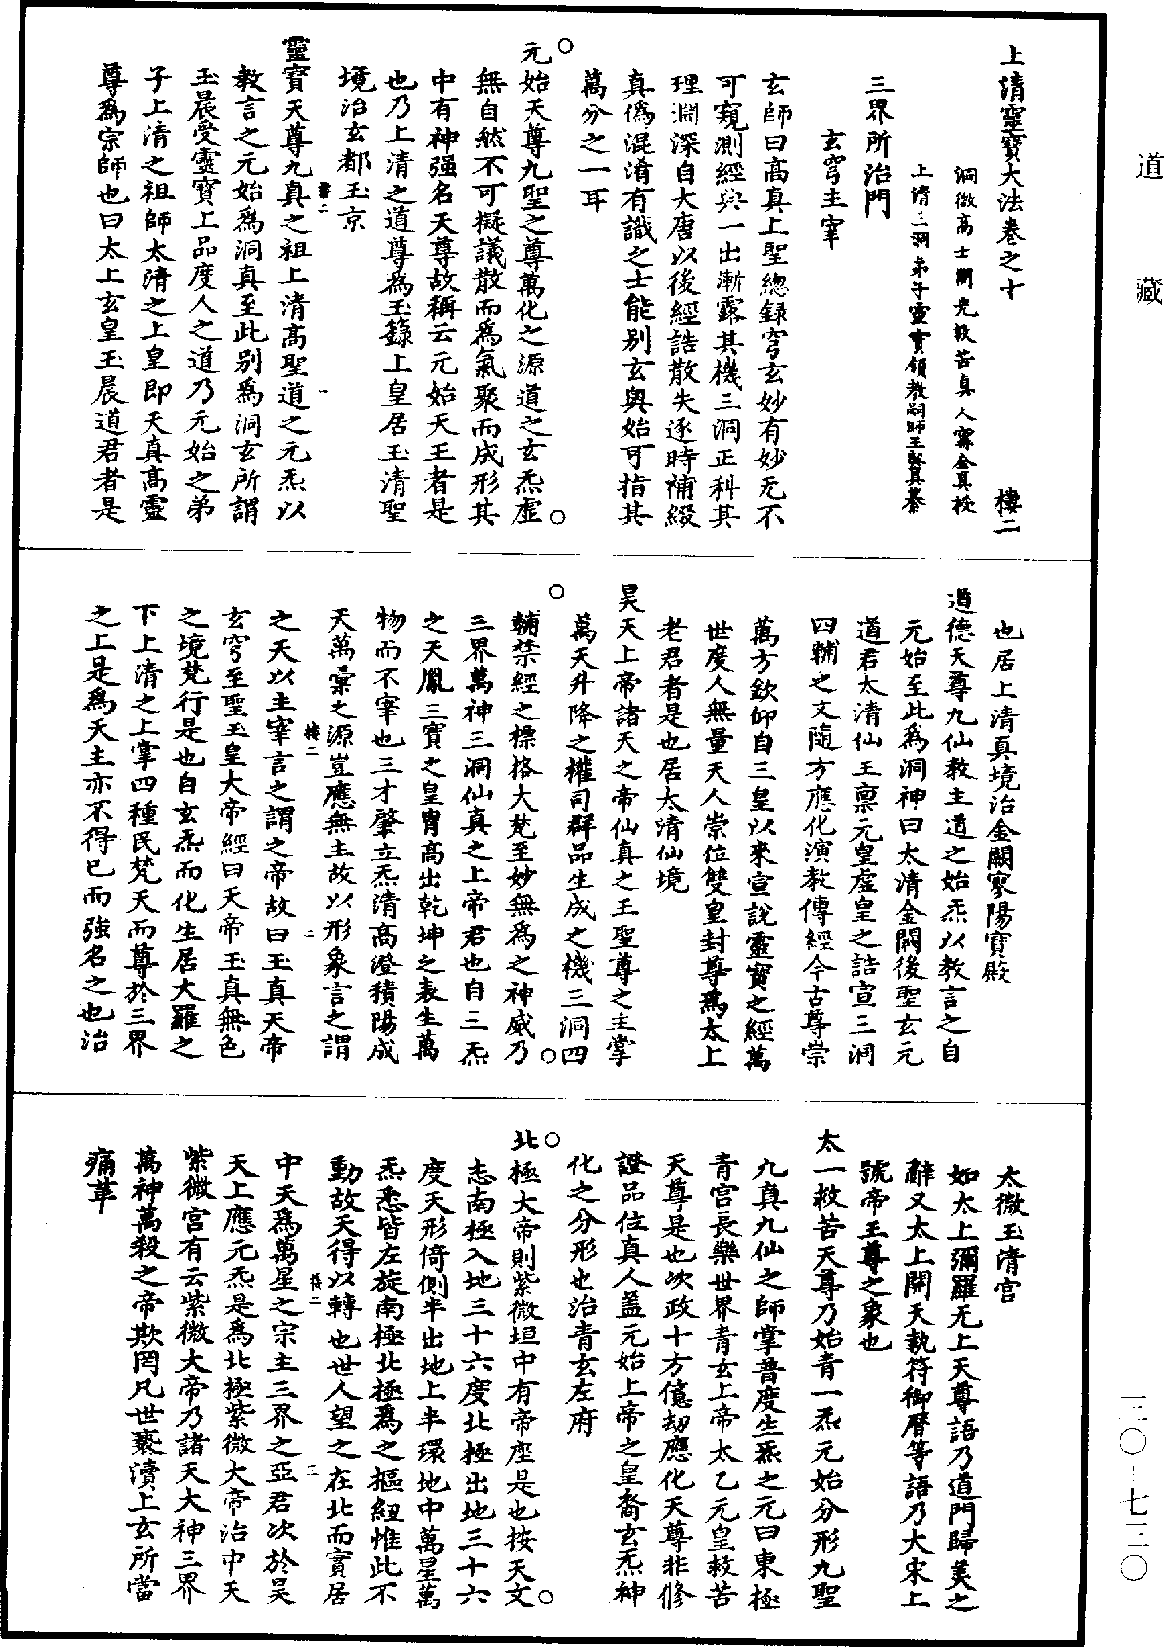 道藏
上清靈寶大法卷之十 棲二
洞微高士開光救苦真人甯全真授
上清三洞弟子靈寶領教嗣師王契真纂
三界所治門
玄穹主宰
玄師曰高真上聖總錄穹玄妙有妙无不
可窺測經典一出漸露其機三洞正科其
理淵深自大唐以後經誥散失逐時補綴
真偽混淆有識之士能別玄奧始可指其
萬分之一耳
○
元始天尊九聖之尊萬化之源道之玄炁虛○
無自然不可擬議散而為氣聚而成形其
中有神強名天尊故稱云元始天王者是
也乃上清之道尊為玉籙上皇居玉清聖
境治玄都玉京
靈寶天尊九真之祖上清高聖道之元炁以
教言之元始為洞真至此別為洞玄所謂
玉晨受靈寶上品度人之道乃元始之弟
子上清之祖師太清之上皇即天真高靈
尊為宗師也曰太上玄皇玉晨道君者是
也居上清真境治金闕寥陽寶殿
道德天尊九仙教主道之始炁以教言之自
元始至此為洞神曰太清金闕後聖玄元
道君太清仙王禀元皇虛皇之誥宣三洞
四輔之文隨方應化演教傳經今古尊崇
萬方欽仰自三皇以來宣說靈寶之經萬
世度人無量天人崇位雙皇封尊為太上
老君者是也居太清仙境
昊天上帝諸天之帝仙真之王聖尊之主掌
萬天升降之權司群品生成之機三洞四
○
輔禁經之標格大梵至妙無為之神威乃○
三界萬神三洞仙真之上帝君也自三炁
之天胤三寶之皇胄高出乾坤之表生萬
物而不宰也三才肇立炁清高澄積陽成
天萬彙之源豈應無主故以形象言之謂
之天以主宰言之謂之帝故曰玉真天帝
玄穹至聖玉皇大帝經曰天帝玉真無色
之境梵行是也自玄炁而化生居大羅之
下上清之上掌四種民梵天而尊於三界
之上是為天主亦不得已而強名之也治
太微玉清宮
如太上彌羅无上天尊語乃道門歸美之
辭又太上開天執符御曆等語乃大宋上
號帝王尊之象也
太一救苦天尊乃始青一炁元始分形九聖
九真九仙之師掌普度生炁之元曰東極
青宮長樂世界青玄上帝太乙元皇救苦
天尊是也次政十方億劫應化天尊非修
證品位真人蓋元始上帝之皇裔玄炁紳
化之分形也治青玄左府
○
北極大帝則紫微垣中有帝座是也按天文○
志南極入地三十六度北極出地三十六
度天形倚側半出地上半環地中萬星萬
炁悉皆左旋南極北極為之樞紐惟此不
動故天得以轉也世人望之在北而實居
中天為萬星之宗主三界之亞君次於昊
天上應元炁是為北極紫微大帝治中天
紫微宮有云紫微大帝乃諸天大神三界
萬神萬殺之帝欺罔凡世褻瀆上玄所當
痛革
三〇-七二〇